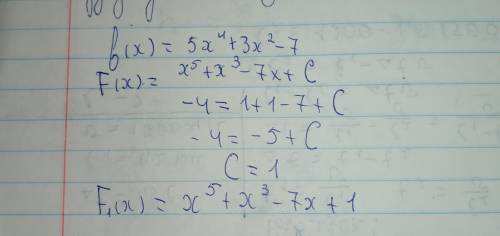 f(x) = 5x⁴+3x²-7
F(x)= x⁵+x³-7x+C
-4=1+1-7+C
-4=-5+C
C=1
F₁(x)= x⁵+x³-7x+1